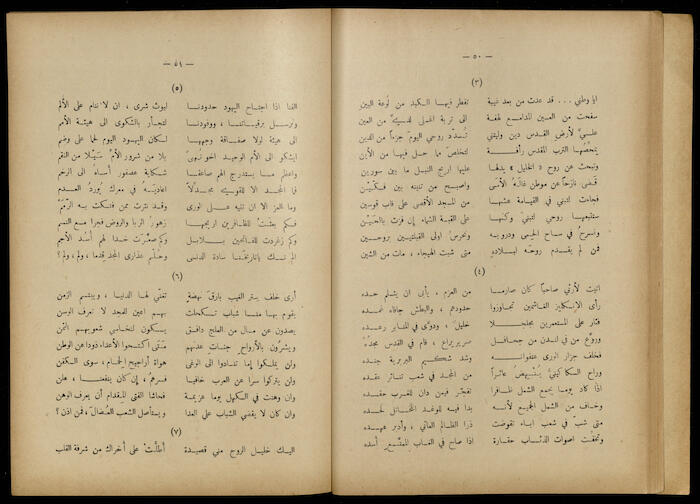 — ٥٠ —
(٣)
ايا وطني .. قد عدت من بعد غيبة تفطر فيها الكبد من لوعة البين
سفحت من العينين المدامع لهفة الى تربة اغلى لدي من العين
عليّ لأرض القدس دين وليتني تُسدّد روحي اليوم جزءاً من الدين
الترب المقدس رأفة لتخلص مما حل فيها من الأين
وتبحث عن روح « الخليل » بدلها عليها اريج النبل ما بين سورين
قضى نازحاً عن موطن غاله الأسى واصبح من تنينه بين فكين
فجاءت لتبني في القيامة عشها من المسجد الأقصى على قاب قوسين
ستتبعها روحي لتبني وكنها على القبة الشماء إن فزت بالحَيْن
واسرح في ساح الحمى ودروبه وتحرس اولى القبلتين بروحين
فمن لم يقدم روحه لبلاده متى شبت الهيجاء ، مات من الشين
(٤)
اتيت لأرثي صاحباً كان صارماً من العزم ، يأبى ان يشلم حده
رأى الإنكليز الغاشمين تجاوزوا حدودهم ، والبطش جافاه ضده
فثار على المستعمرين مجلجلا خليل ، ودوّى في المنابر رعده
وروّع من في لندن من جحافل صرير يراع ، قام في القدس مجده
فخلف جزار الورى عنفوانه وشد شكيم البربرية جنده
وراح من المجد في شعب تناثر عقده
اذا كاد يوماً يجمع الشمل ظافرا تفجر فيمن دان للغرب حقده
وخاف من الشمل الجميع لأنه بدا فيه للوغد المخاتل لحده
متى شب في شعب اباء تقوضت ذرا الظالم العاتي ، وأدبر عهده
وتخفت اصوات الذئاب حقارة اذا صاح في الغاب الممنّع أسده
— ٥١ —
(٥)
الفنا اذا اجتاح اليهود حدودنا ليوث شرى ، ان لا ننام على الألم
ونرسل برقياتنا ، ووفودنا لتجأر بالشكوى الى هيئة الأمم
الى هيئة لولا صفاقة وجهها لكان اليهود اليوم لحما على وضم
ايشكو الى الأم الوحيد اخو بلا من شرور الأم سيلا من النقم
واعظم ما يستدرج الهم صاعقا شكاية عصفور أساه الى الرخم
فما المجد الا للقوي مجدلا اعاديه في معرك يورد العدم
وما العز الا ان تتيه على الورى وقد نثرت ممن فتكت به الرمم
فكم بعثت للظافرين اريجها زهور الربا والروض فجرا مع النسم
وكم زغردت للفاتحين بلابل وكم صعّرت خدا لهم أسد الأجم
الم تك يا تاريخنا سادة الدنى وحلم عذارى المجد قدما ، ولم ، ولم ؟
(٦)
أرى خلف ستر الغيب بارق نهضة تغني لها الدنيا ، ويبتسم الزمن
يقوم بها منا شباب تكحلت بهم أعين للمجد لا تعرف الوسن
يصدون عن مال من العلج دافق يكون لنخاسي شعوبهم الثمن
ويشرون بالأرواح جنات عدنهم متى اكتسحوا الأعداء ذودا عن الوطن
ولن يملكوا إما تنادوا الى الوغى هواة أراجيح الحمام ، سوى الكفن
ولن يتركوا سرا عن العرب خافيا فسرهم ، إن كان ينفعنا ، علن
وان وهنت في الكهل يوما عزيمة فحاشا الفتى المقدام أن يعرف الوهن
وان كان لا يقضي الشباب على العدا ويستأصل الشعب العضال ، فمن اذن ؟
(٧)
اليك خليل الروح مني قصيدة أطلّت على أخراك من شرفة القلب